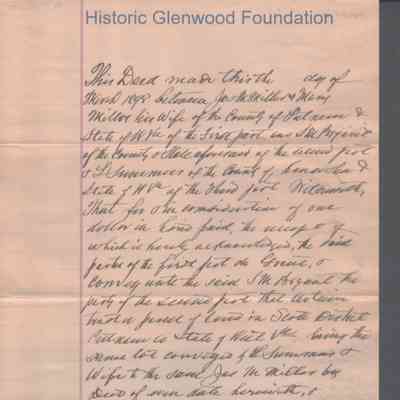 Historic Glenwood Foundation
This Deed made this the day of
March 189 between Jas M Miller & Mary
Miller his Wife of the County of Putnam &
State of W Va of the first part and S M
of the County & State aforesaid of the second part
& Summers of the County of Kanawha &
State of W Va of the third part Witnesseth,
That for & in consideration of one
dollar in hand paid, the receipt of
which is hereby acknowledged, the said
parties of the first part do Grant, &
Convey unto the said S M Bryant the
party of the second part that certain
tract or parcel of land in Scott District
Putnam Co State of West Va being the
same lot conveyed by Summers &
Wife to the said Jas M Miller by
Deed of even date herewith, &